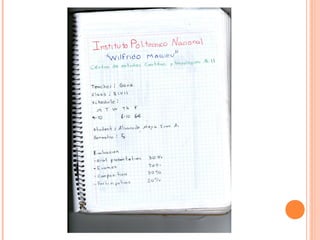 Instituto Politecnico Nacional
"Wilfrido Massieu"
Centro de estudios Cientificos y tecnologicos # 11
Teacher: Gera
Class:
Schedule:
M T W Th F
Student: Alvarado Maya Ivan A.
Semester: 5
Evaluation
- Oral presentation 30%
- Examen
- Composition 30%
- Participation 20%